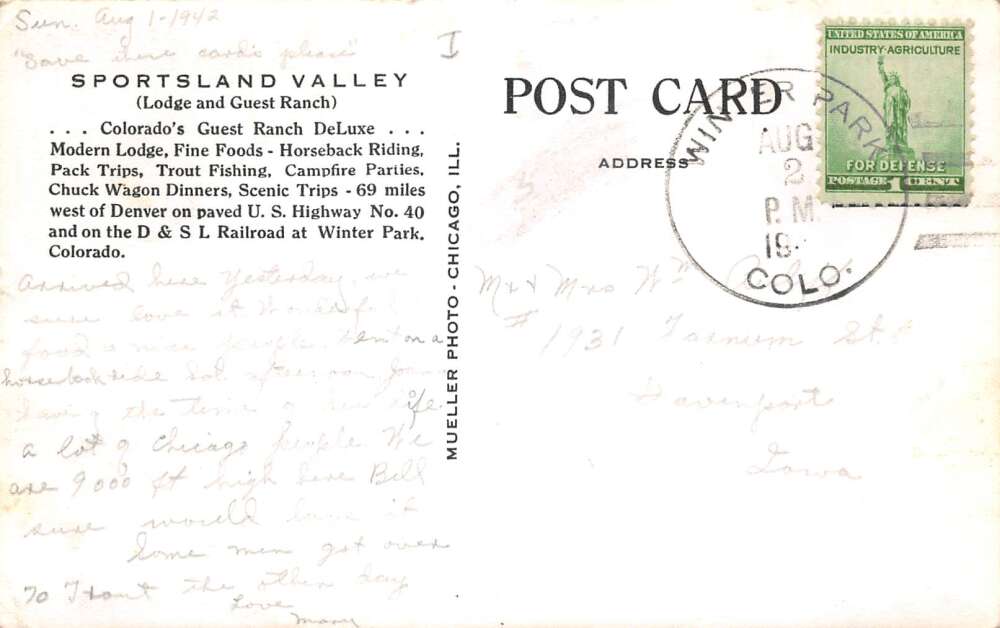 Sun. Aug 1-1942
"Save these cards please"
I
SPORTSLAND VALLEY
(Lodge and Guest Ranch)
. . . Colorado's Guest Ranch DeLuxe . . .
Modern Lodge, Fine Foods - Horseback Riding,
Pack Trips, Trout Fishing, Campfire Parties,
Chuck Wagon Dinners, Scenic Trips - 69 miles
west of Denver on paved U. S. Highway No. 40
and on the D & S L Railroad at Winter Park,
Colorado.
Arrived here Yesterday. we
sure love it Wonderful
food & nice people. Went on a
horseback ride Sat. afternoon
having the time of her life
a lot of Chicago people We
are 9000 ft high here Bill
sure would love it
Some men got over
70 Trout the other day
Love
Mary
MUELLER PHOTO - CHICAGO, ILL.
POST CARD
ADDRESS
WINTER PARK
AUG
2
P.M.
19
COLO.
UNITED STATES OF AMERICA
INDUSTRY-AGRICULTURE
FOR DEFENSE
POSTAGE 1 CENT
Mr & Mrs Wm
# 1931 Farnum St.
Davenport
Iowa